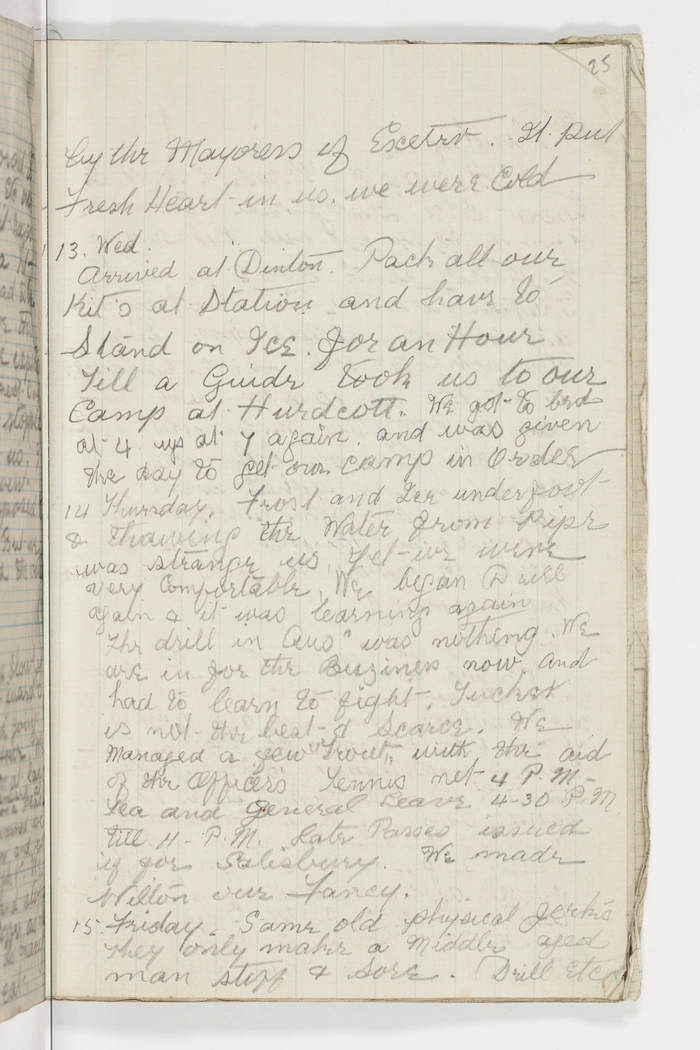 25
by the Mayoress of Exeter. It put
Fresh Heart in us. we were Cold
13. Wed.
Arrived at Dinton. Pack all our
Kit's at Station and have to
Stand on Ice. for an Hour
Till a Guide took us to our
Camp at Hurdcott. We got to bed
at 4 up at 7 again. and was given
the day to get our camp in Order
14 Thursday. Frost and Ice underfoot
& thawing the Water from Pipe
was strange us, yet we were
very Comfortable. We began Drill
again & it was learning again
The drill in Aus" was nothing. We
are in for the Buziness now. and
had to learn to fight. Tucker
is not the best & Scarce. We
Managed a few "Trout", with the aid
of the Officers Tennis net 4 P.M-
Tea and General Leave 4-30 P.M
till 11- P.M. Late Passes issued
if for Salisbury. We made
Wilton our Fancy.
15 Friday. Same old physical Jerks
they only make a Middle aged
man stiff & Sore. Drill Etc